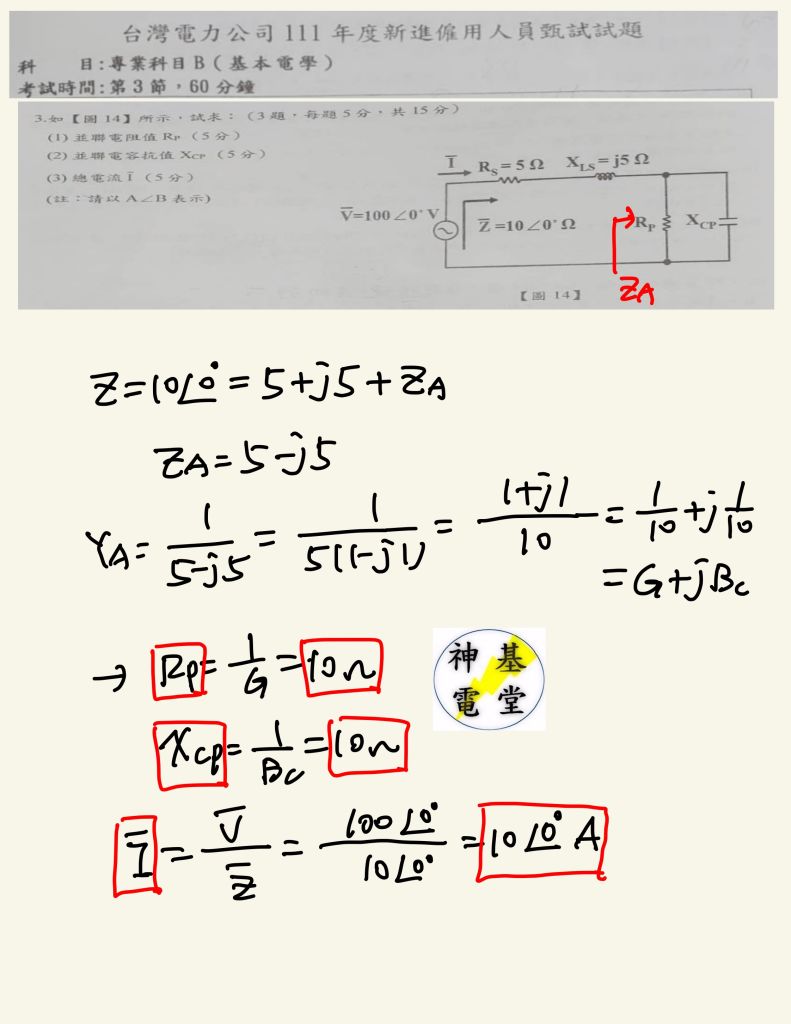 台灣電力公司 111 年度新進僱用人員甄試試題
科 目:專業科目B(基本電學)
考試時間:第3節,60分鐘
3.如【圖14】所示,試求:(3題,每題5分,共15分)
(1)並聯電阻值 RP (5分)
(2)並聯電容抗值 XCP (5分)
(3)總電流 Ī (5分)
(註:請以A∠B表示)
Ī RS=5Ω XLS=j5Ω
V̄=100∠0°V Z̄=10∠0°Ω RP XCP
ZA
【圖14】
Z=10∠0°=5+j5+ZA
ZA=5-j5
YA=1/(5-j5)=1/(5(1-j1))=(1+j1)/10=1/10+j1/10
=G+jBc
→ Rp=1/G=10Ω
Xcp=1/Bc=10Ω
神基
電堂
Ī=V̄/Z̄=100∠0°/10∠0°=10∠0° A